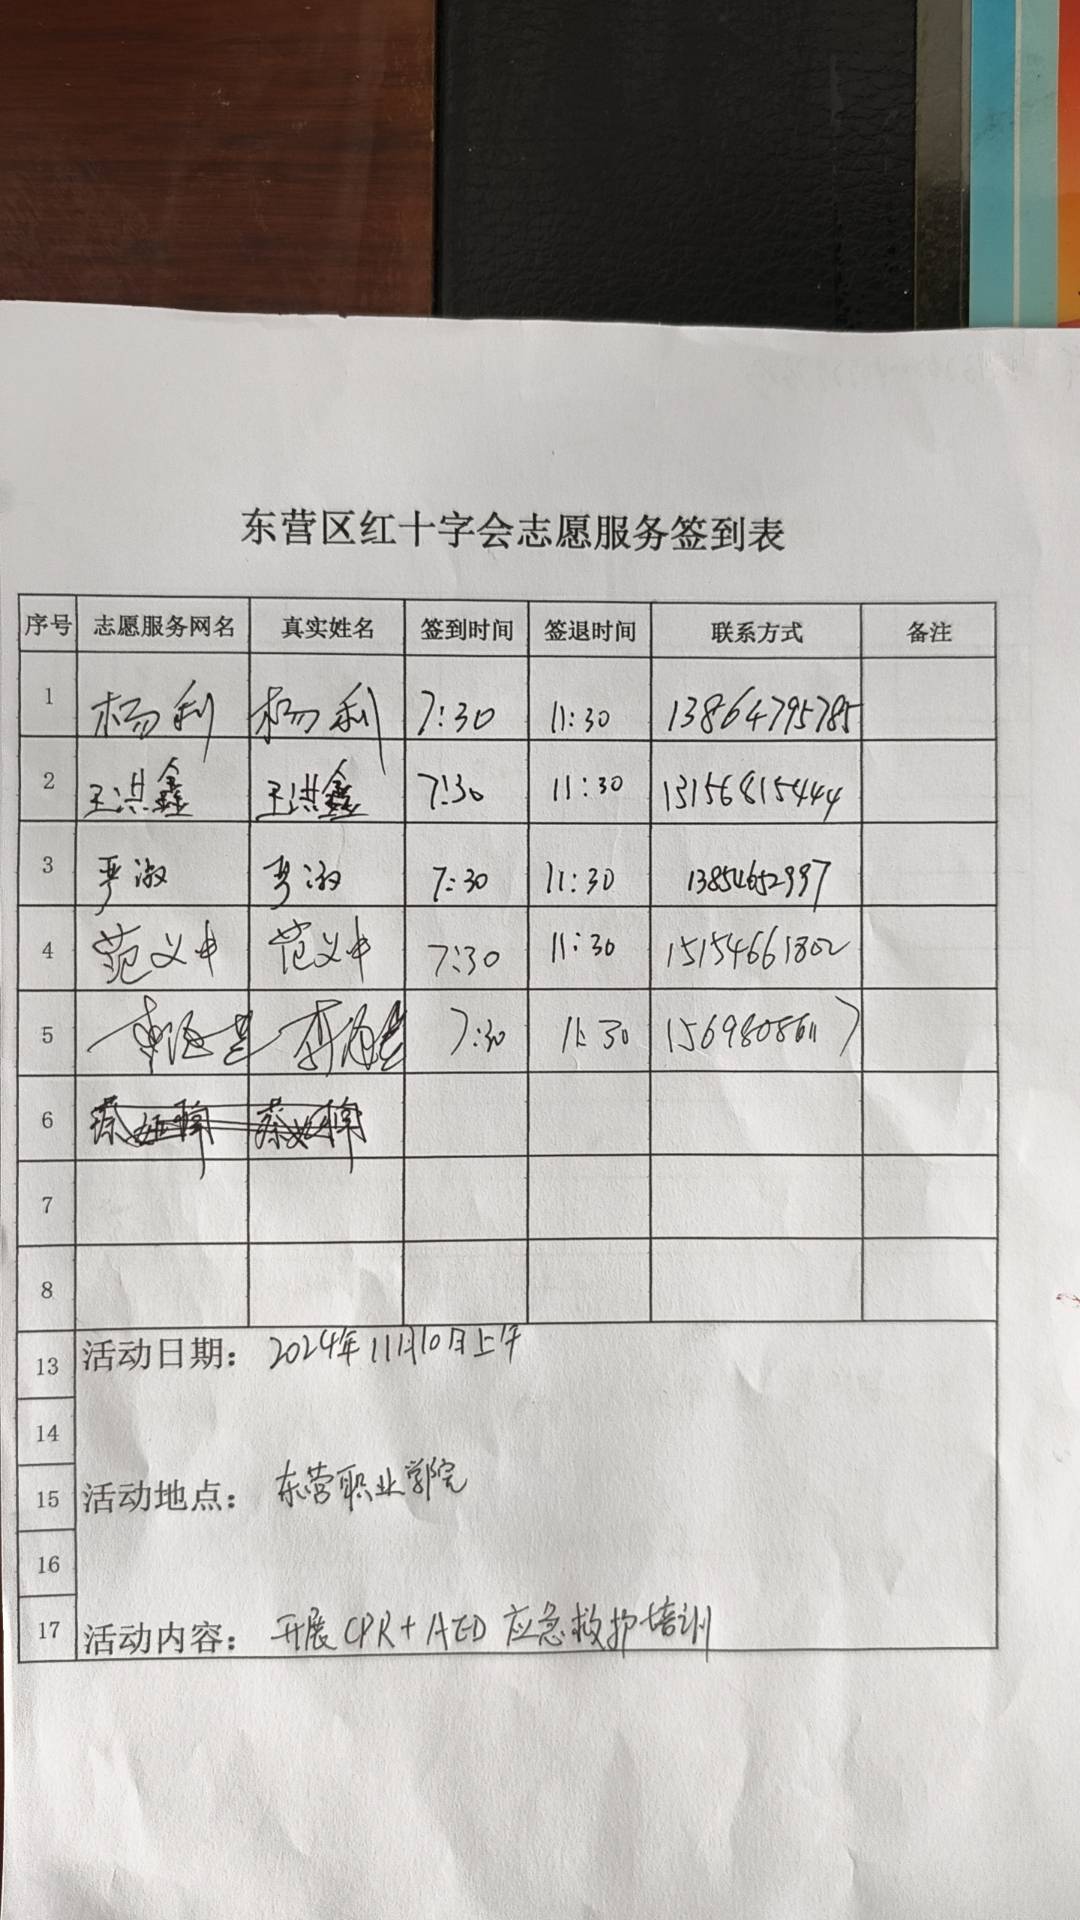 东营区红十字会志愿服务签到表
序号 志愿服务网名 真实姓名 签到时间 签退时间 联系方式 备注
1 杨利 杨利 7:30 11:30 13864795785
2 王洪鑫 王洪鑫 7:30 11:30 13156815444
3 严淑 严淑 7:30 11:30 13854652997
4 范义中 范义中 7:30 11:30 15154661802
5 7:30 11:30 15698086117
6
7
8
13 活动日期： 2024年11月10日上午
14
15 活动地点： 东营职业学院
16
17 活动内容： 开展CPR+AED应急救护培训